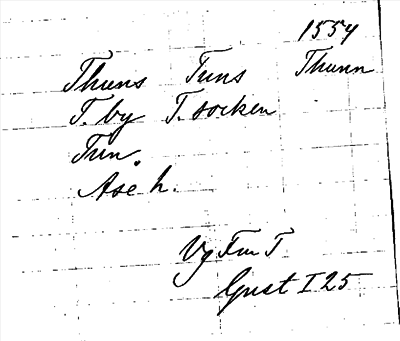 1554
Thuns Tuns Thunn
T. by T. socken
Tun.
Åse h.
Vg Fru T
Gust I 25